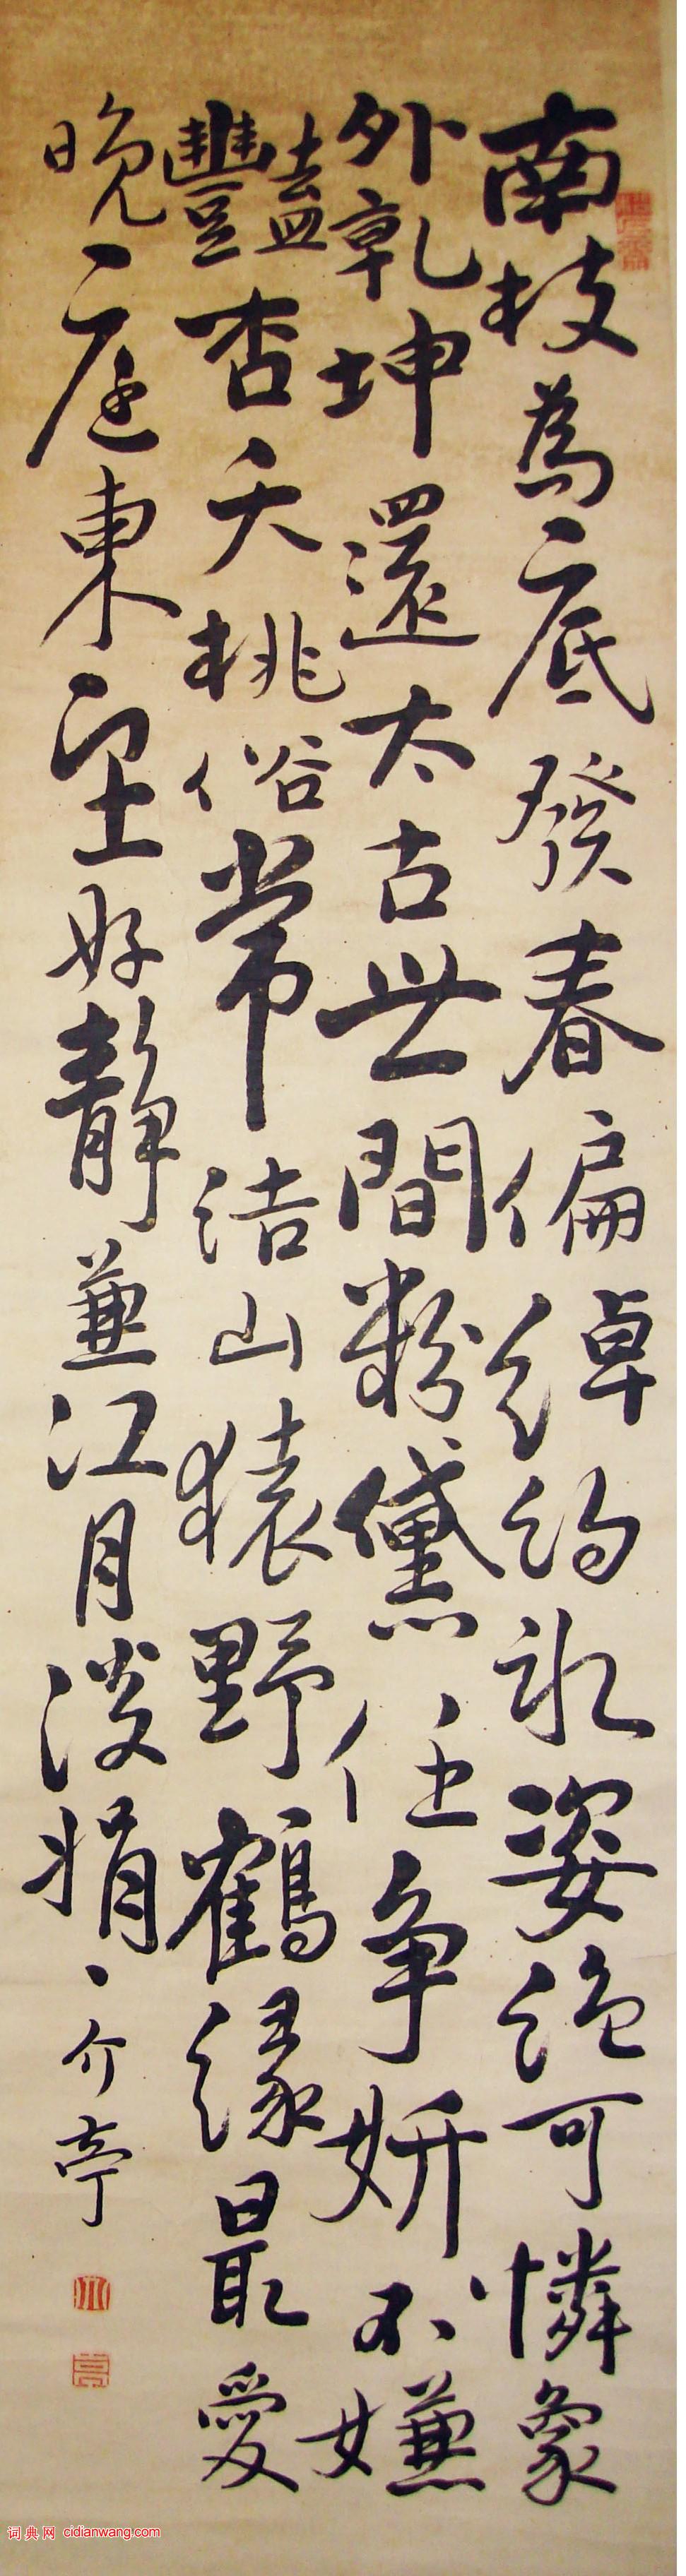 南枝為底發春偏綽約氷姿絕可憐象
外乾坤還太古世間粉黛任爭妍不嫌
豔杏夭桃俗常結山猿野鶴緣最愛
晚庭東望好靜兼江月淡娟、介亭
词典网 cidianwang.com